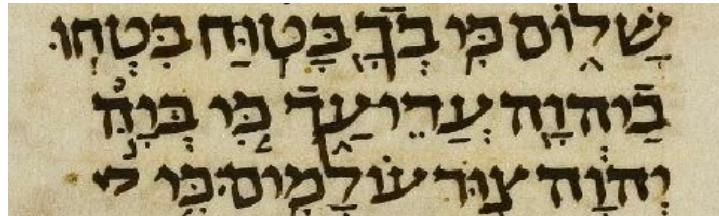 שָׁל֑וֹם כִּ֥י בְךָ֖ בָּטֽוּחַ בִּטְח֥וּ
בַֽיהוָ֖ה עֲדֵי עַ֑ד כִּ֚י בְּיָ֣הּ
יְהוָ֔ה צ֖וּר עוֹלָמִֽים׃ כִּ֤י